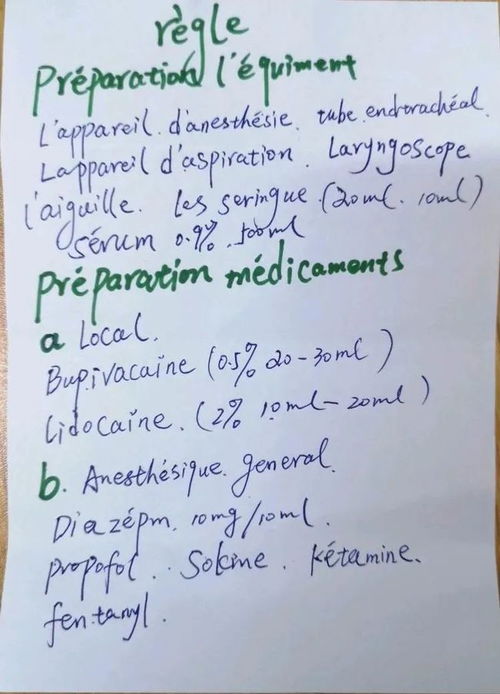 règle
Préparation l'équiment
L'appareil. d'anesthésie. tube endotrachéal.
Lappareil d'aspiration. Laryngoscope
l'aiguille. Les seringue. (20ml. 10ml)
Sérum 0.9% 500ml
Préparation médicaments
a Local.
Bupivacaïne (0.5% 20-30ml)
Lidocaïne. (2% 10ml-20ml)
b. Anesthésique. general.
Diazépm. 10mg/10ml.
propofol. kétamine.
fentanyl.